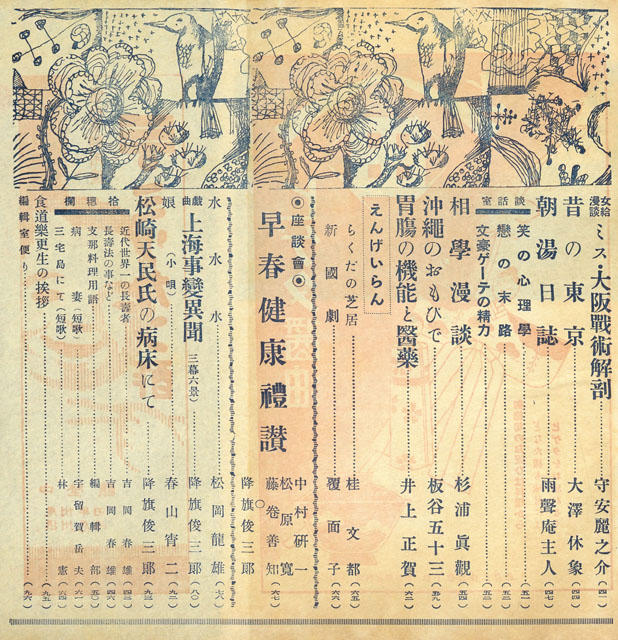 女給漫談 ミス・大阪戰術解剖 守安麗之介 (四一)
昔の東京 大澤休象 (四四)
朝湯日誌 雨聲庵主人 (四七)
談話室
笑の心理學 (五一)
戀の末路 (五二)
文豪ゲーテの精力 (五三)
相學漫談 杉浦眞觀 (五四)
沖繩のおもひで 板谷五十三 (五九)
胃腸の機能と醫藥 井上正賀 (六二)
えんげいらん
らくだの芝居 桂文都 (六五)
新國劇 覆面子 (六六)
◎座談會◎
早春健康禮讃
中村研一
松原寛
藤卷善知 (六七)
降旗俊三郎
水水水 松岡龍雄 (七八)
戲曲 上海事變異聞 (三幕六景) 降旗俊三郎 (八〇)
娘 (小唄) 春山宵二 (九二)
松崎天民氏の病床にて 降旗俊三郎 (九三)
拾穗欄
近代世界一の長壽者 吉岡春雄 (四三)
長壽法の事など 吉岡春雄 (四六)
支那料理用語 編輯部 (五〇)
病妻 (短歌) 宇留賀岳夫 (六一)
三宅島にて (短歌) 林憲 (六四)
食道樂更生の挨拶 (九五)
編輯室便り (九六)